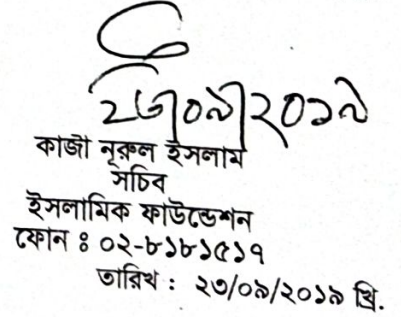 ২৩/০৯/২০১৯
কাজী নূরুল ইসলাম
সচিব
ইসলামিক ফাউন্ডেশন
ফোন ঃ ০২-৮১৮১৫১৭
তারিখ : ২৩/০৯/২০১৯ খ্রি.